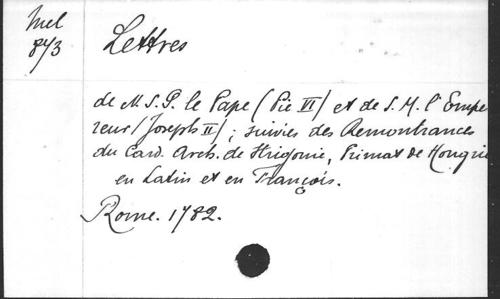 Mel
873
Lettres
de M. S. P. le Pape (Pie VI) et de S. M. l'Empe
reur (Joseph II); suivies des Remontrances
du Card. Arch. de Strigonie, Primat de Hongrie
en Latin et en François.
Rome. 1782.